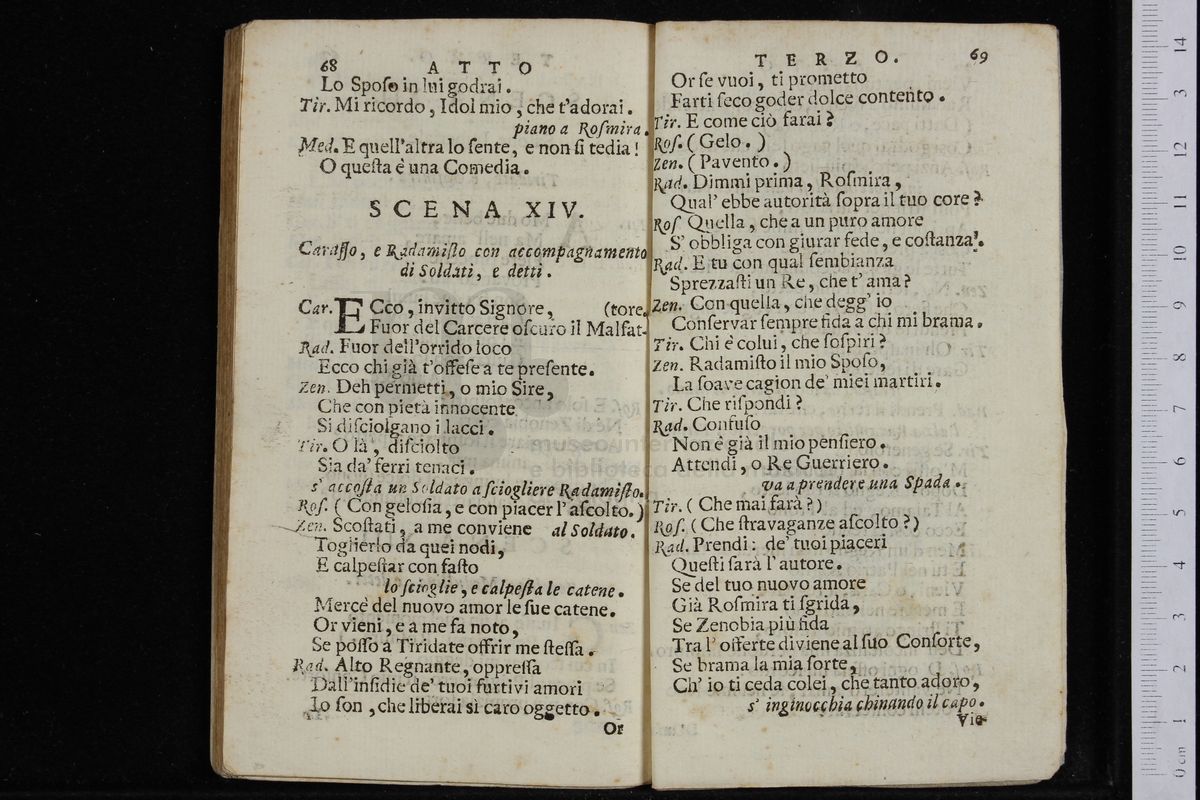 68 ATTO
Lo Sposo in lui godrai.
Tir. Mi ricordo, Idol mio, che t'adorai.
piano a Rosmira.
Med. E quell'altra lo sente, e non si tedia!
O questa è una Comedia.
SCENA XIV.
Carasso, e Radamisto con accompagnamento
di Soldati, e detti.
Car. ECco, invitto Signore, (tore.
Fuor del Carcere oscuro il Malfat-
Rad. Fuor dell'orrido loco
Ecco chi già t'offese a te presente.
Zen. Deh permetti, o mio Sire,
Che con pietà innocente
Si disciolgano i lacci.
Tir. O là, disciolto
Sia da' ferri tenaci.
s' accosta un Soldato a sciogliere Radamisto.
Ros. (Con gelosia, e con piacer l'ascolto.)
Zen. Scostati, a me conviene al Soldato.
Toglierlo da quei nodi,
E calpestar con fasto
lo scioglie, e calpesta le catene.
Mercè del nuovo amor le sue catene.
Or vieni, e a me fa noto,
Se posso a Tiridate offrir me stessa.
Rad. Alto Regnante, oppressa
Dall'insidie de' tuoi furtivi amori
Io son, che liberai sì caro oggetto.
Or
TERZO. 69
Or se vuoi, ti prometto
Farti seco goder dolce contento.
Tir. E come ciò farai?
Ros. (Gelo.)
Zen. (Pavento.)
Rad. Dimmi prima, Rosmira,
Qual' ebbe autorità sopra il tuo core?
Ros Quella, che a un puro amore
S' obbliga con giurar fede, e costanza.
Rad. E tu con qual sembianza
Sprezzasti un Re, che t' ama?
Zen. Con quella, che degg' io
Conservar sempre fida a chi mi brama.
Tir. Chi è colui, che sospiri?
Zen. Radamisto il mio Sposo,
La soave cagion de' miei martiri.
Tir. Che rispondi?
Rad. Confuso
Non è già il mio pensiero.
Attendi, o Re Guerriero.
va a prendere una Spada.
Tir. (Che mai farà?)
Ros. (Che stravaganze ascolto?)
Rad. Prendi: de' tuoi piaceri
Questi sarà l' autore.
Se del tuo nuovo amore
Già Rosmira ti sgrida,
Se Zenobia più fida
Tra l' offerte diviene al suo Consorte,
Se brama la mia sorte,
Ch' io ti ceda colei, che tanto adoro,
s' inginocchia chinando il capo.
Vie-